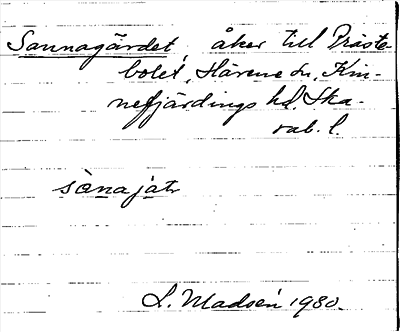 Sannagärdet, åker till Präste-
bolet, Härene sn, Kin-
nefjärdings hd, Ska-
rab. l.
sànajatr
L. Madsén 1930.